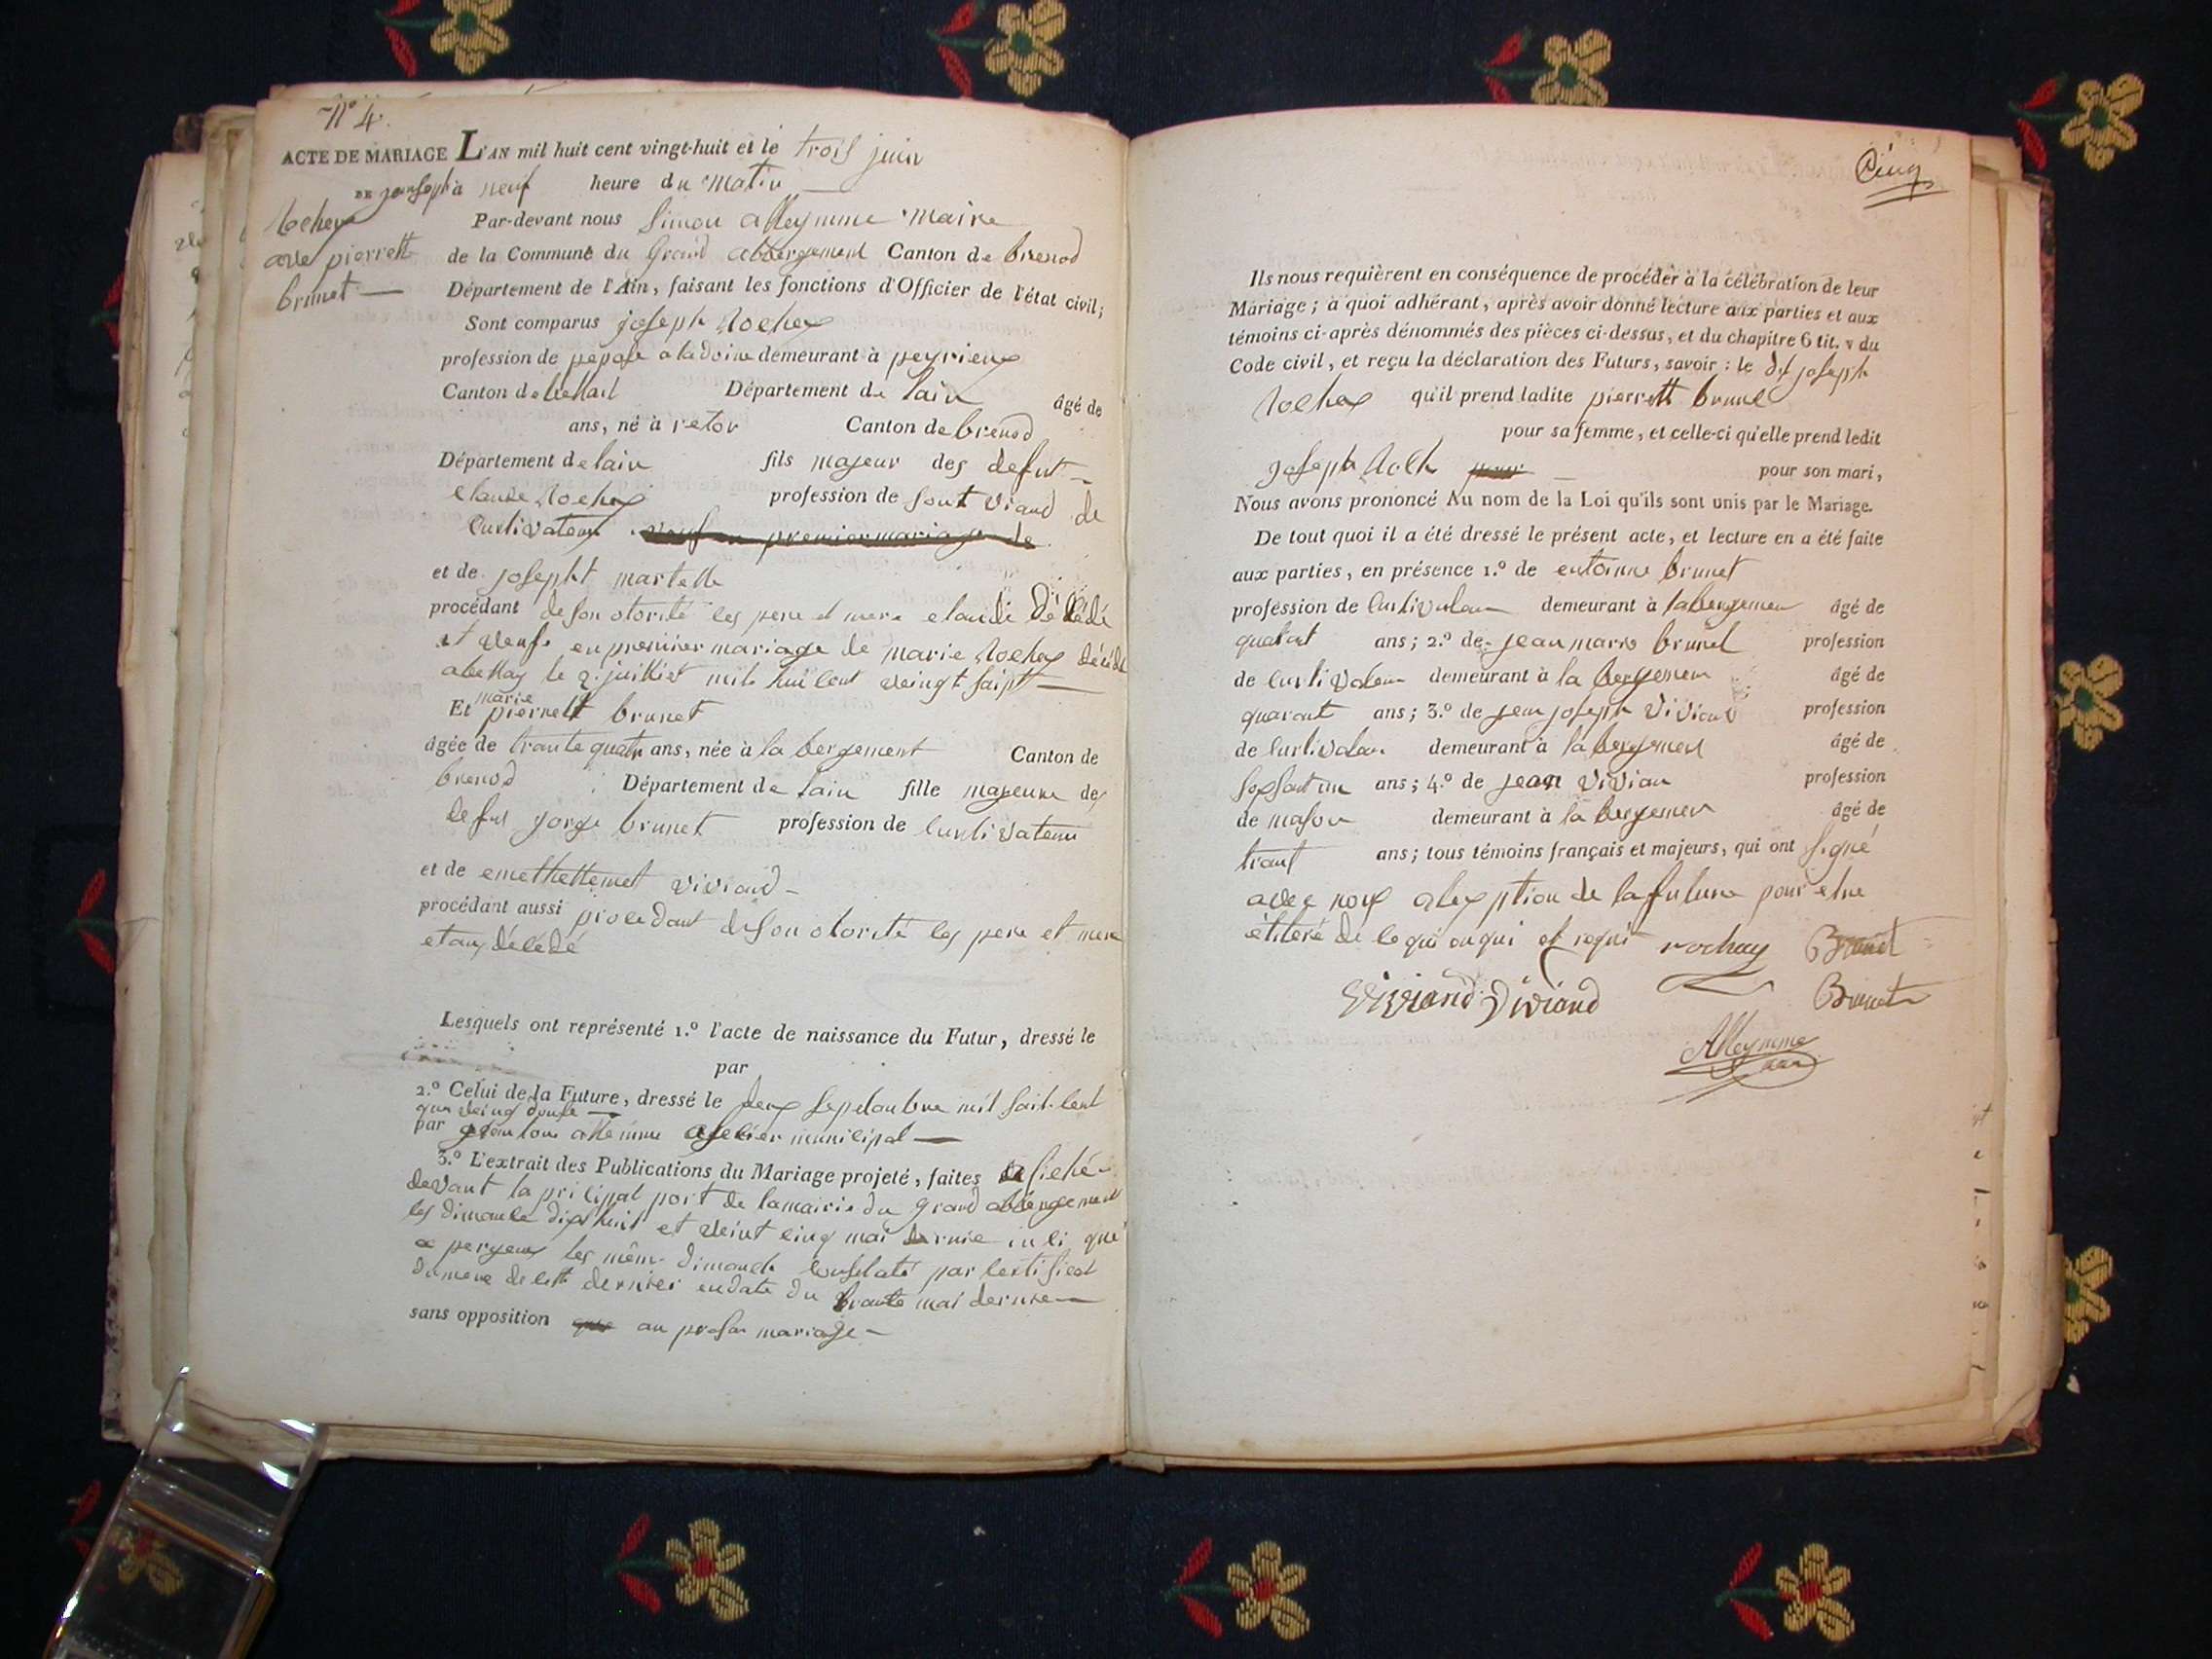 N° 4.
ACTE DE MARIAGE L'AN mil huit cent vingt-huit et le trois juin
DE joseph à neuf heure du matin
Rochex
Par-devant nous Simon alleymme Maire
avec pierrett
de la Commune du Grand abbergement Canton de brenod
brunet —
Département de l'Ain, faisant les fonctions d'Officier de l'état civil;
Sont comparus joseph Rochex
profession de demeurant à peyrieux
Canton de Département de lain âgé de
ans, né à retor Canton de brenod
Département de lain fils majeur des defut
claude Rochex profession de de
Curtivateur veuf en premier mariage de
et de josepht martelle
procédant de son otorité les pere et mere claude décédé
et veufe en premier mariage de marie Rochex décédé
abellay le 2 juilliet mile huï cent veingt saipt —
Et marie pierrett brunet
âgée de trante quatr ans, née à la bergement Canton de
brenod Département de lain fille majeure des
defut jorge brunet profession de Curtivateur
et de viviand —
procédant aussi procedant de son otorité les pere et mere
etant décédé
Lesquels ont représenté 1.° l'acte de naissance du Futur, dressé le
par
2.° Celui de la Future, dressé le deux septanbre mil sait cent
quatre veing douse —
par municipal —
3.° L'extrait des Publications du Mariage projeté, faites afiché
devant la pricipal port de la mairie du grand abbergement
les dimance dixhuit et veint cinq mai dernie insi que
a les même dimanch constaté par certificat
du mere de cett dernier en date du trante mai dernie —
sans opposition que au mariage —
Cinq
Ils nous requièrent en conséquence de procéder à la célébration de leur
Mariage; à quoi adhérant, après avoir donné lecture aux parties et aux
témoins ci-après dénommés des pièces ci-dessus, et du chapitre 6 tit. v du
Code civil, et reçu la déclaration des Futurs, savoir : le dit joseph
Rochex qu'il prend ladite pierrett brunet
pour sa femme, et celle-ci qu'elle prend ledit
joseph Roch pour son mari,
Nous avons prononcé Au nom de la Loi qu'ils sont unis par le Mariage.
De tout quoi il a été dressé le présent acte, et lecture en a été faite
aux parties, en présence 1.° de entoinne brunet
profession de Curtivateur demeurant à labergemen âgé de
quarant ans; 2.° de jean marie brunet profession
de Curtivateur demeurant à la bergemen âgé de
quarant ans; 3.° de jean joseph viviand profession
de Curtivateur demeurant à la bergement âgé de
ans; 4.° de jean vivian profession
de mason demeurant à la bergemen âgé de
trant ans; tous témoins français et majeurs, qui ont signé
avec nous de la future pour etre
de requi rochay Brunet
Viviand Viviand Brunet
Alleymme